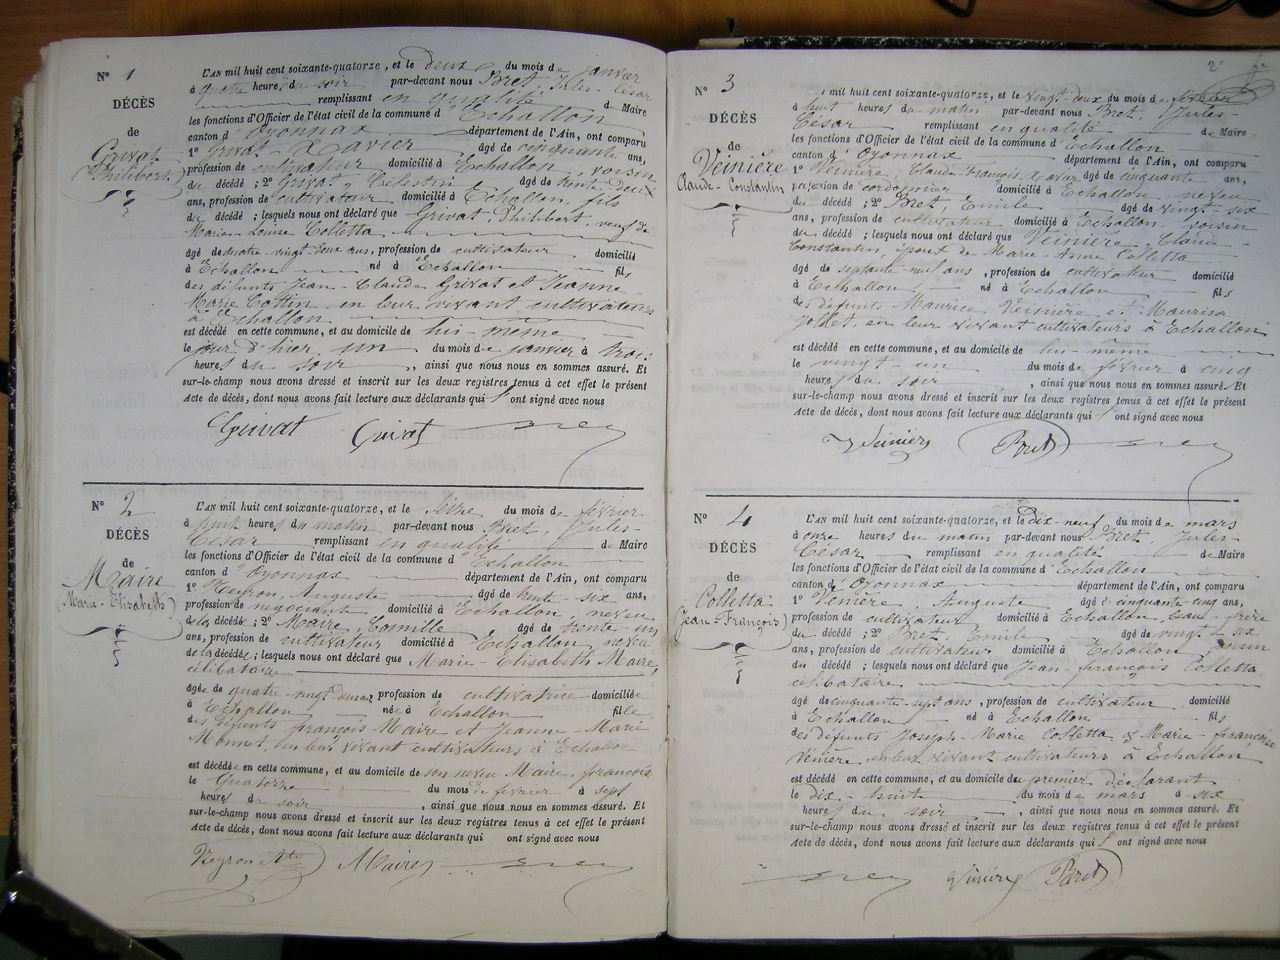 N° 1
DÉCÈS
de
Grivat
(Philibert)
L'AN mil huit cent soixante-quatorze, et le deux du mois de janvier
à quatre heures du soir par-devant nous Bret, Jules-César
remplissant en qualité de Maire
les fonctions d'Officier de l'état civil de la commune d'Echallon
canton d'Oyonnax département de l'Ain, ont comparu
1° Grivat Xavier âgé de cinquante ans,
profession de cultivateur domicilié à Echallon, voisin
du décédé ; 2° Grivat, Célestin âgé de trente-deux
ans, profession de cultivateur domicilié à Echallon, fils
du décédé ; lesquels nous ont déclaré que Grivat, Philibert, veuf de
Marie Louise Colletta
âgé de quatre-vingt ans, profession de cultivateur domicilié
à Echallon né à Echallon fils
des défunts Jean-Claude Grivat et Jeanne
Marie Cottin en leur vivant cultivateurs
à Echallon
est décédé en cette commune, et au domicile de lui-même
le jour d'hier, un du mois de janvier à trois
heures du soir, ainsi que nous nous en sommes assuré. Et
sur-le-champ nous avons dressé et inscrit sur les deux registres tenus à cet effet le présent
Acte de décès, dont nous avons fait lecture aux déclarants qui l'ont signé avec nous
Grivat Grivat Bret
N° 2
DÉCÈS
de
Maire
(Marie-Elizabeth)
L'AN mil huit cent soixante-quatorze, et le seize du mois de février
à huit heures du matin par-devant nous Bret, Jules-
César remplissant en qualité de Maire
les fonctions d'Officier de l'état civil de la commune d'Echallon
canton d'Oyonnax département de l'Ain, ont comparu
1° Neyron, Auguste âgé de trente-six ans,
profession de négociant domicilié à Echallon neveu
de la décédée ; 2° Maire, Camille âgé de trente-un
ans, profession de cultivateur domicilié à Echallon, neveu
de la décédée ; lesquels nous ont déclaré que Marie-Elisabeth Maire,
célibataire
âgée de quatre-vingt-deux ans, profession de cultivatrice domiciliée
à Echallon née à Echallon fille
des défunts françois Maire et Jeanne-Marie
Monnet, en leur vivant cultivateurs à Echallon
est décédée en cette commune, et au domicile de son neveu Maire, françois
le Quatorze du mois de février à sept
heures du soir, ainsi que nous nous en sommes assuré. Et
sur-le-champ nous avons dressé et inscrit sur les deux registres tenus à cet effet le présent
Acte de décès, dont nous avons fait lecture aux déclarants qui ont signé avec nous
Neyron Ate Maire Bret
2e
N° 3
DÉCÈS
de
Veinière
Claude-Constantin
mil huit cent soixante-quatorze, et le vingt-deux du mois de février
à huit heures du matin par-devant nous Bret, Jules-
César remplissant en qualité de Maire
les fonctions d'Officier de l'état civil de la commune d'Echallon
canton d'Oyonnax département de l'Ain, ont comparu
1° Veinière, Claude François Xavier âgé de cinquante ans,
profession de cordonnier domicilié à Echallon neveu
du décédé ; 2° Bret, Emile âgé de vingt-six
ans, profession de cultivateur domicilié à Echallon voisin
du décédé ; lesquels nous ont déclaré que Veinière, Claude-
Constantin, époux de Marie-Anne Colletta
âgé de septante-neuf ans, profession de cultivateur domicilié
à Echallon né à Echallon fils
des défunts Maurice Veinière et Maurisa
Jollet, en leur vivant cultivateurs à Echallon
est décédé en cette commune, et au domicile de lui-même
le vingt-un du mois de février à cinq
heures du soir, ainsi que nous nous en sommes assuré. Et
sur-le-champ nous avons dressé et inscrit sur les deux registres tenus à cet effet le présent
Acte de décès, dont nous avons fait lecture aux déclarants qui l'ont signé avec nous
Veinière Bret Bret
N° 4
DÉCÈS
de
Colletta
(Jean-François)
L'AN mil huit cent soixante-quatorze, et le dix-neuf du mois de mars
à onze heures du matin par-devant nous Bret, Jules-
César remplissant en qualité de Maire
les fonctions d'Officier de l'état civil de la commune d'Echallon
canton d'Oyonnax département de l'Ain, ont comparu
1° Venière, Auguste âgé de cinquante-cinq ans,
profession de cultivateur domicilié à Echallon, beau-frère
du décédé ; 2° Bret, Emile âgé de vingt-six
ans, profession de cultivateur domicilié à Echallon, voisin
du décédé ; lesquels nous ont déclaré que Jean-françois Colletta
célibataire
âgé de cinquante-sept ans, profession de cultivateur domicilié
à Echallon né à Echallon fils
des défunts Joseph-Marie Colletta & Marie-françoise
Venière en leur vivant cultivateurs à Echallon
est décédé en cette commune, et au domicile du premier déclarant
le dix-huit du mois de mars à six
heures du soir, ainsi que nous nous en sommes assuré. Et
sur-le-champ nous avons dressé et inscrit sur les deux registres tenus à cet effet le présent
Acte de décès, dont nous avons fait lecture aux déclarants qui l'ont signé avec nous
Bret Vinière Bret